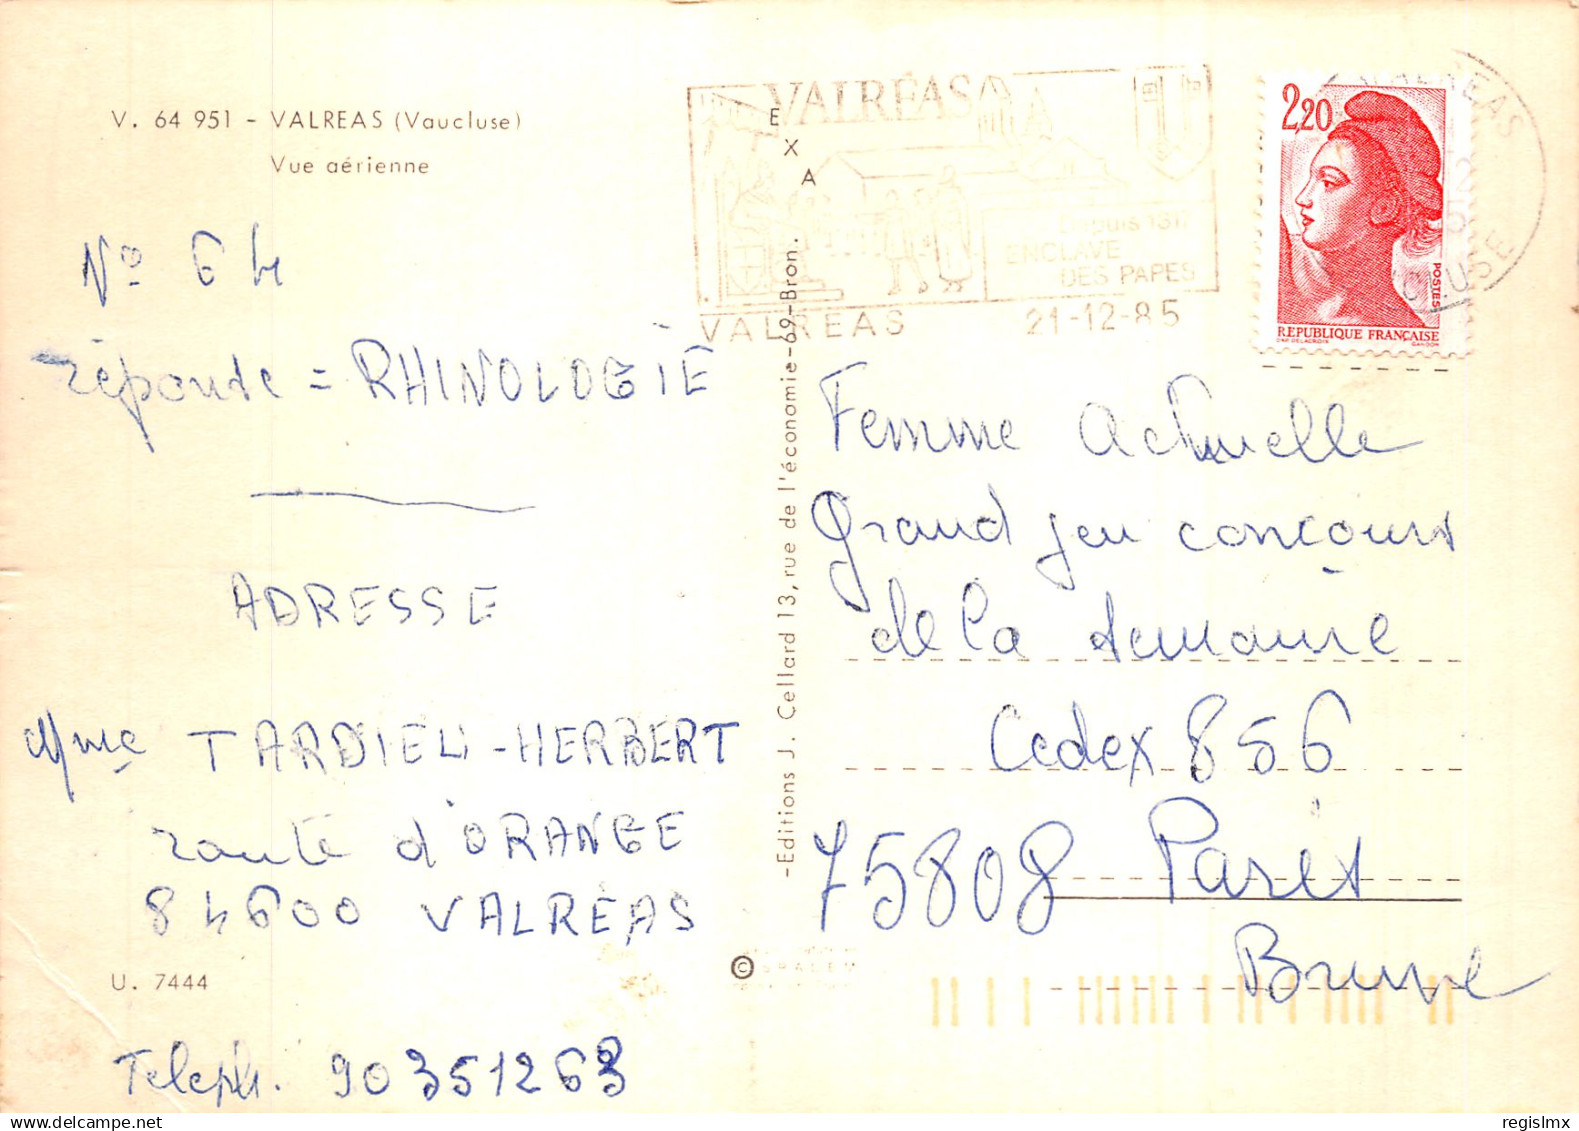 V. 64 951 - VALREAS (Vaucluse)
Vue aérienne
N° 64
réponse = RHINOLOGIE
ADRESSE
Mme TARDIEU-HERBERT
route d'ORANGE
84600 VALRÉAS
U. 7444
Teleph. 90351263
EXA
-Editions J. Cellard 13, rue de l'économie-69-Bron.
©
VALRÉAS
Depuis 1317
ENCLAVE
DES PAPES
VALREAS 21-12-85
2,20
POSTES
REPUBLIQUE FRANÇAISE
VALREAS
Femme Actuelle
Grand jeu concours
de la semaine
Cedex 856
75808 Paris
Brune
regislmx